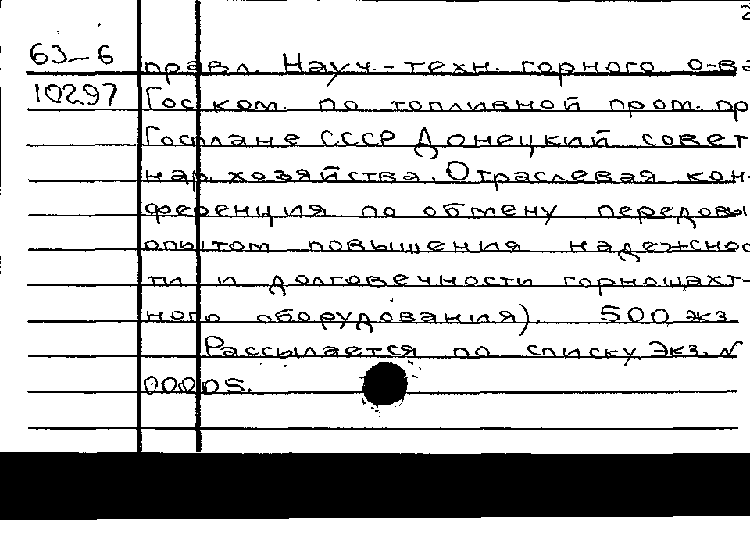 2
63-6 правл. Науч.-техн. горного о-ва
10297 Гос ком. по топливной пром. пр
Госплане СССР Донецкий совет
нар. хозяйства. Отраслевая кон-
ференция по обмену передовы
опытом повышения надежнос
ти и долговечности горношахт-
ного оборудования). 500 экз.
Рассылается по списку. Экз. N
00005.